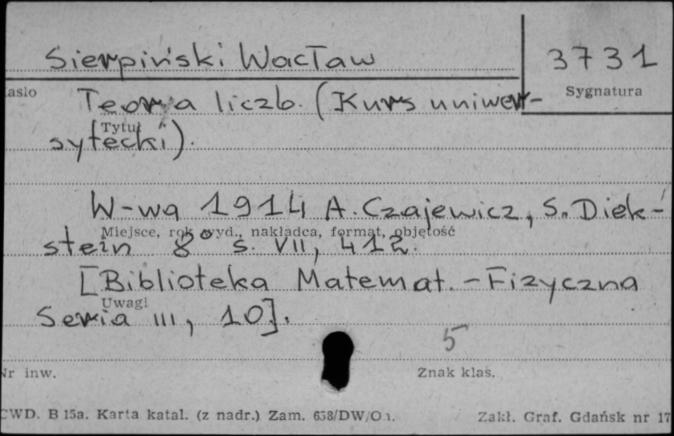 Sierpiński Wacław
3731
asło
Sygnatura
Teoria liczb. (Kurs uniwer-
Tytuł
sytecki).
W-wa 1914 A. Czajewicz, S. Diek-
Miejsce, rok wyd., nakładca, format, objętość
stein 8° s. VII, 412.
[Biblioteka Matemat.-Fizyczna
Uwagi
Seria III, 10].
5
Nr inw.
Znak klas.
CWD. B 15a. Karta katal. (z nadr.) Zam. 658/DW/O
Zakł. Graf. Gdańsk nr 17